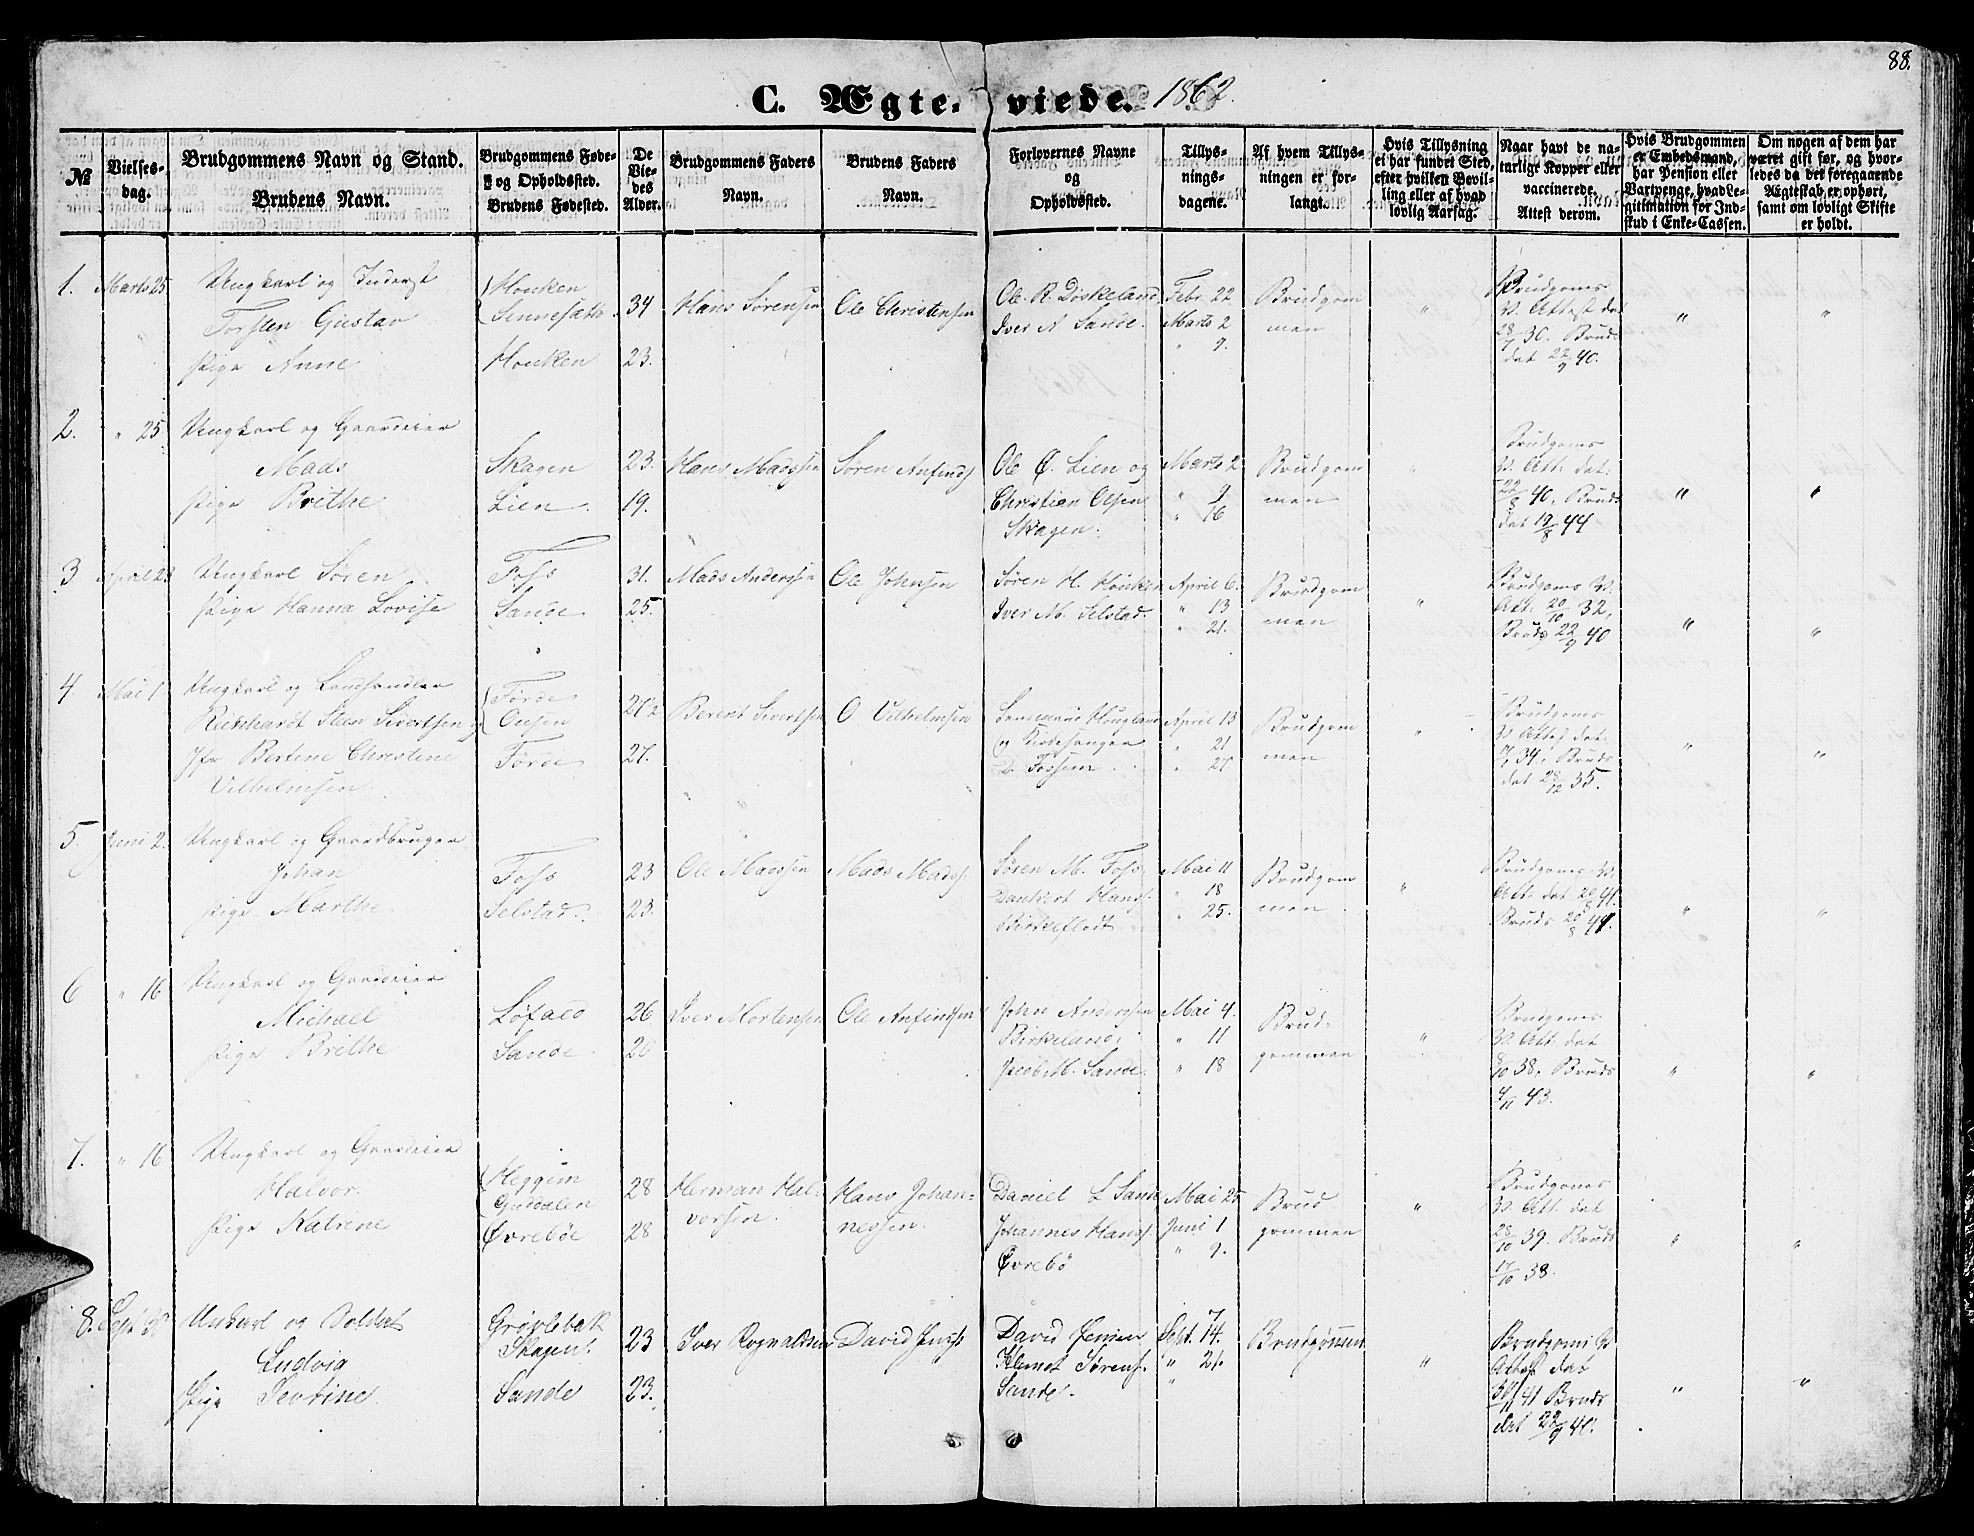 88.
C. Ægte-viede. 1862.
№
Vielses-dag.
Brudgommens Navn og Stand.
Brudens Navn.
Brudgommens Føde-
og Opholdssted.
Brudens Fødested.
De
Vie-
des
Alder.
Brudgommens Faders
Navn.
Brudens Faders
Navn.
Forlovernes Navne
og
Opholdssted.
Tillys-
nings-
dagene.
Af hvem Tillys-
ningen er for-
langt.
Hvis Tillysning
ei har fundet Sted,
efter hvilken Bevil-
ling eller af hvad
lovlig Aarsag.
Naar havt de na-
turlige Kopper eller
vaccinerede.
Attest derom.
Hvis Brudgommen
er Embedsmand,
har Pension eller
Vartpenge, hvad Le-
gitimation for Ind-
skud i Enke-Cassen.
Om nogen af dem har
været gift før, og hvor-
ledes da det foregaaende
Ægteskab er ophørt,
samt om lovligt Skifte
er holdt.
1. Marts 25
Ungkarl og Inderst
Torsten Gustav
Pige Anne
Houken
Sennesæth
Houken
34
23.
Hans Sørensen
Ole Christensen
Ole R. Döskeland
Iver A Sande.
Febr. 22
Marts 2
" 9.
Brudgom
men
"
Brudgoms
V. Attest det
28/9 30. Brud
det 22/9 40.
"
"
2. " 25
Ungkarl og Gaardeier
Mads
Pige Brithe
Skagen
Lien
23.
19.
Hans Madssen
Søren Anfinds
Ole Ø. Lien og
Christian Olsen
Skagen.
Marts 2
" 9
" 16
Brudgom
men
"
Brudgoms
V. Att: det:
22/8 40. Bruds
det 19/8 44
"
"
3 April 21
Ungkarl Søren
Pige Hanna Lovise
Foss
Sande
31.
25.
Mads Anderssen
Ole Johnsen
Søren H. Houken
Iver M. Selstad.
April 6.
" 13
" 21.
Brudgom
men
"
Brudgoms V.
Att: 20/10 32,
Bruds 22/9 40
"
"
4 Mai 1
Ungkarl og Landhandler
Richhardt Steen Sivertsen og
Jfr Bertine Christine
Vilhelmsen.
Førde
Førde
27½
27.
Berent Sivertsen
O Vilhelmsen
og Kirkesanger
April 13
" 21
" 27
Brudgom
men
"
Brudgoms
V Attest det:
34, Bruds
det 28/12 35.
"
"
5. Juni 2.
Ungkarl og Gaardbruger
Johan
Pige Marthe
Foss
Selstad.
23
23.
Ole Madssen
Mads Mads.
Søren M. Foss
Dankert Hans.
Birkeflødt
Mai 11
" 18
" 25.
Brudgom
men
"
Brudgoms V.
Att: det 20/8 41.
Bruds 20/8 41.
"
"
6 " 16
Ungkarl og Gaardeier
Michael
Pige Brithe
Løfald
Sande
26
20
Iver Mortensen
Ole Anfindsen
John Anderssen
Birkeland;
Jacob M. Sande.
Mai 4.
" 11
" 18
Brud-
gommen
"
Brudgoms
V. Att: det
8/10 38, Bruds
4/11 43.
"
"
7. " 16
Ungkarl og Gaardeier
Halvor
Pige Katrine
Heggim
Guddalen
Øvrebøe
28
28
Herman Hal-
vorsen.
Hans Johan-
nessen.
Daniel L Sande
Johannes Hans.
Øvrebø
Mai 25
Juni 1
" 9.
Brud
gommen
"
Brudgoms
V. Att: det
28/10 39. Bruds
17/10 38.
"
"
8. Sept 30
Unkarl og Soldat
Ludvig
Pige Severine
Grøvlebak
Skagen.
Sande
23
23.
Iver Rognaldsen
David Jens
David Jensen
Klemet Sørens.
Sande.
7
Sept. 14.
" 21.
"
Brudgommen
"
Brudgoms V
Attest det
30/11 41 Bruds
det 22/9 40.
"
"